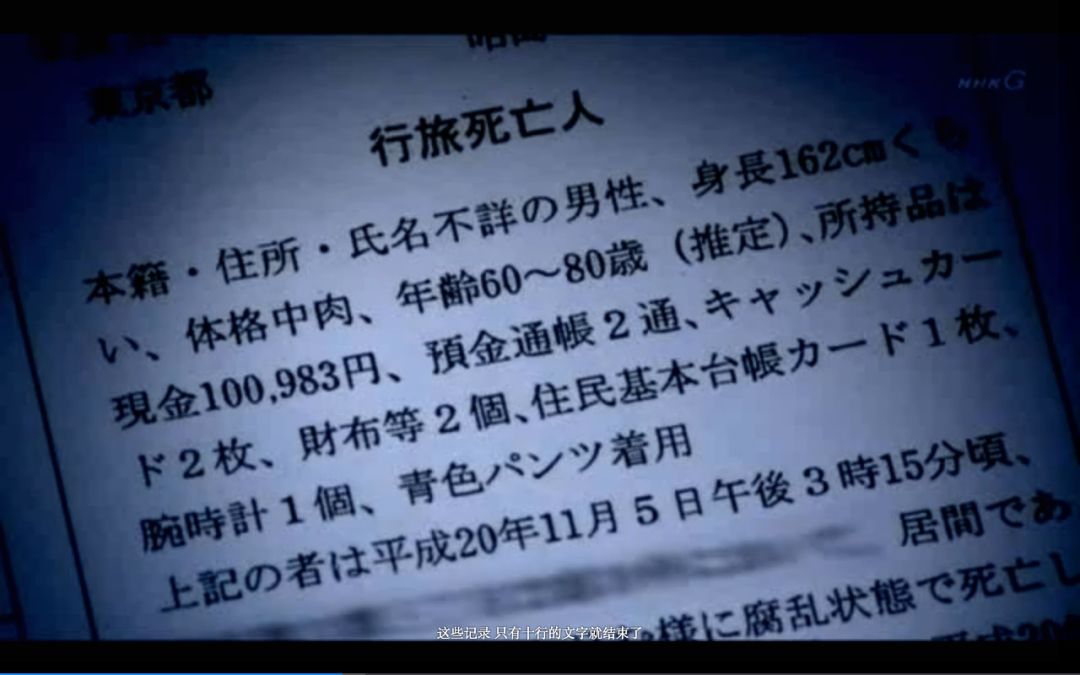 東京都
NHK G
行旅死亡人
本籍・住所・氏名不詳の男性、身長162cmくら
い、体格中肉、年齢60〜80歳（推定）、所持品は
現金100,983円、預金通帳２通、キャッシュカー
ド２枚、財布等２個、住民基本台帳カード１枚、
腕時計１個、青色パンツ着用
上記の者は平成20年11月５日午後３時15分頃、
居間であ
様に腐乱状態で死亡し
平成20
这些记录 只有十行的文字就结束了